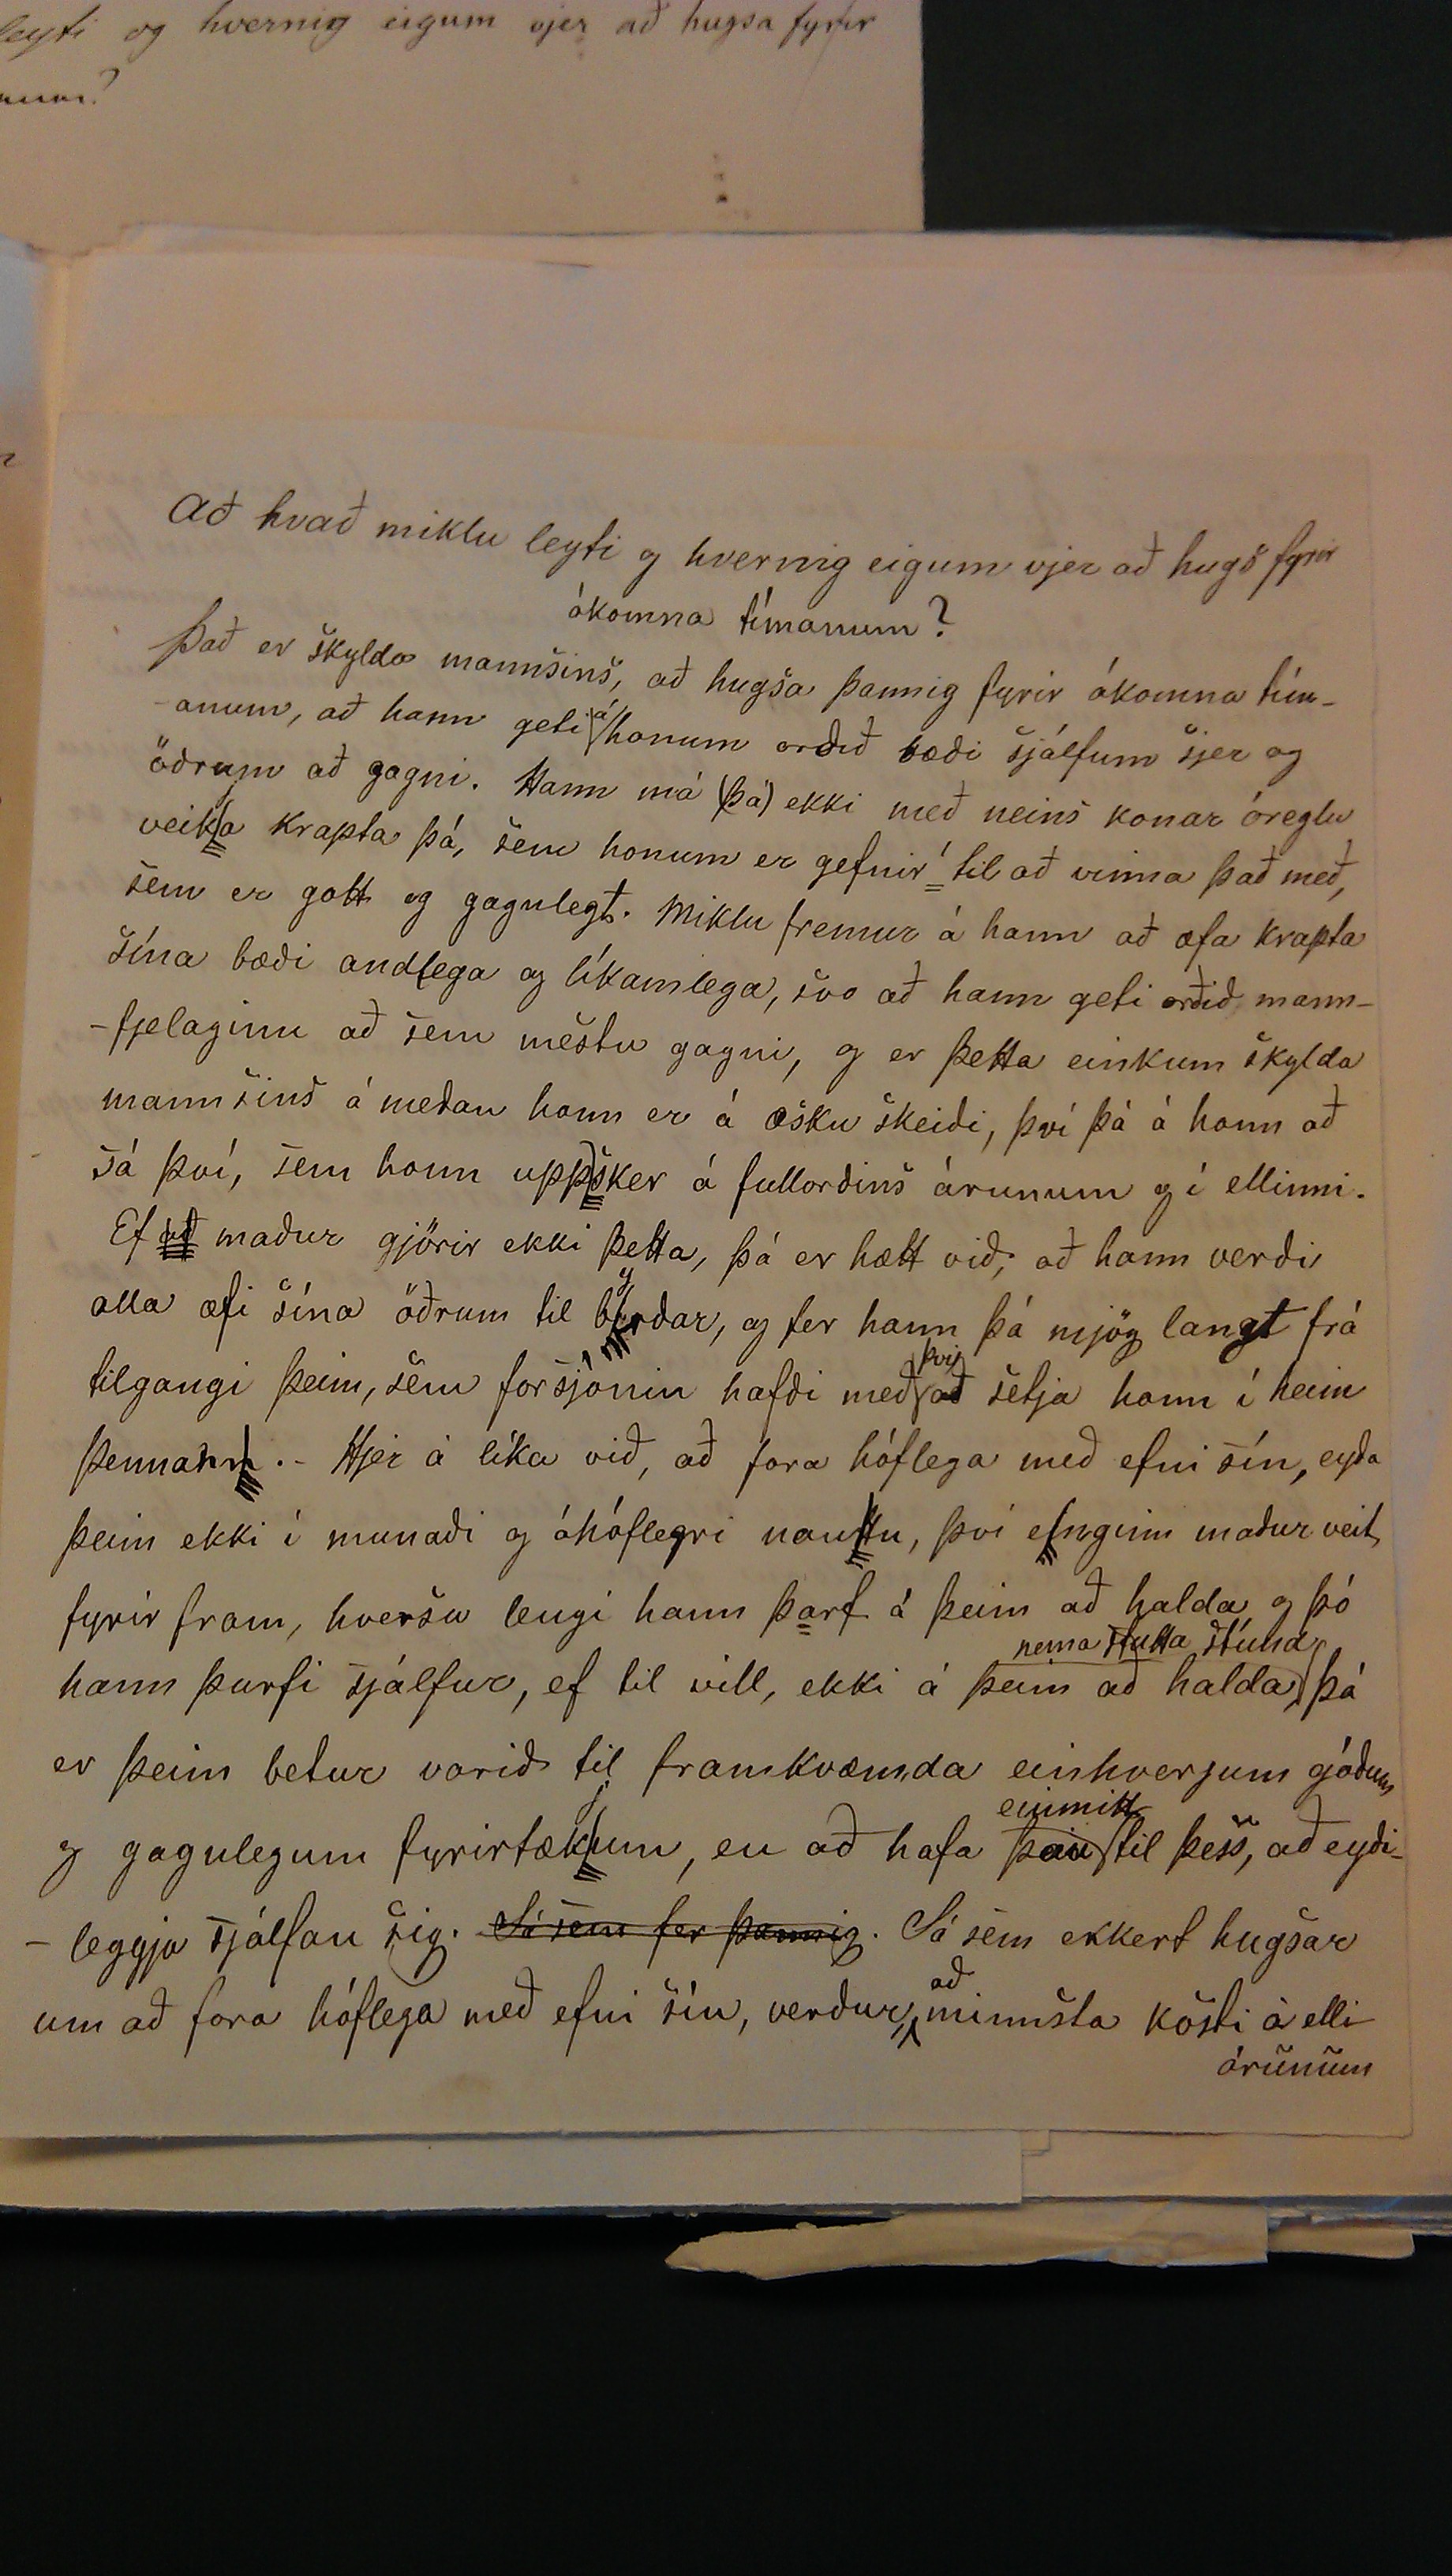 leyti og hvernig eigum vjer að hugsa fyrir
Að hvað miklu leyti og hvernig eigum vjer að hugs fyrir
ókomna tímanum?
Það er skylda mannsins, að hugsa þannig fyrir ókomna tím-
-anum, að hann geti á honum orðið bæði sjálfum sjer og
öðrum að gagni. Hann má (þá) ekki með neins konar óreglu
veikja krapta þá, sem honum er gefnir til að vinna það með,
sem er gott og gagnlegt. Miklu fremur á hann að æfa krapta
sína bæði andlega og líkamlega, svo að hann geti orðið mann-
-fjelaginu að sem mestu gagni, og er þetta einkum skylda
mannsins á meðan hann er á æsku skeiði, því þá á hann að
sá því, sem hann uppsker á fullorðins árunum og í ellinni.
Ef að maður gjörir ekki þetta, þá er hætt við, að hann verði
alla æfi sína öðrum til byrðar, og fer hann þá mjög langt frá
tilgangi þeim, sem forsjónin hafði með því að setja hann í heim
þennann. - Hjer á líka við, að fara hóflega með efni sín, eyða
þeim ekki í munaði og óhóflegri nauttn, því einginn maður veit
fyrir fram, hversu lengi hann þarf á þeim að halda, og þó
nema stutta stund,
hann þurfi sjálfur, ef til vill, ekki á þeim að halda, þá
er þeim betur varið til framkvæmda einhverjum góðum
einmitt
og gagnlegum fyrirtækjum, en að hafa þau til þess, að eyði-
-leggja sjálfan sig. Sá sem fer þannig. Sá sem ekkert hugsar
um að fara hóflega með efni sín, verður að minnsta kosti á elli
árunum